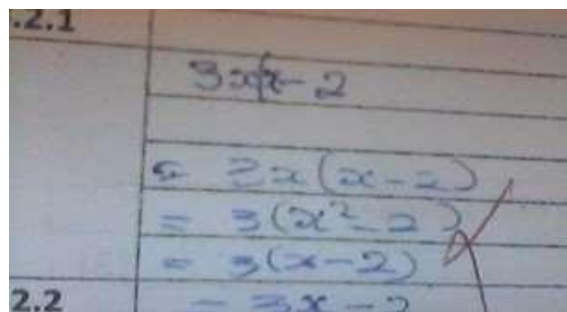 .2.1
3x(x-2
= 3x(x-2)
= 3(x²-2)
= 3(x-2)
2.2
- 3x-2